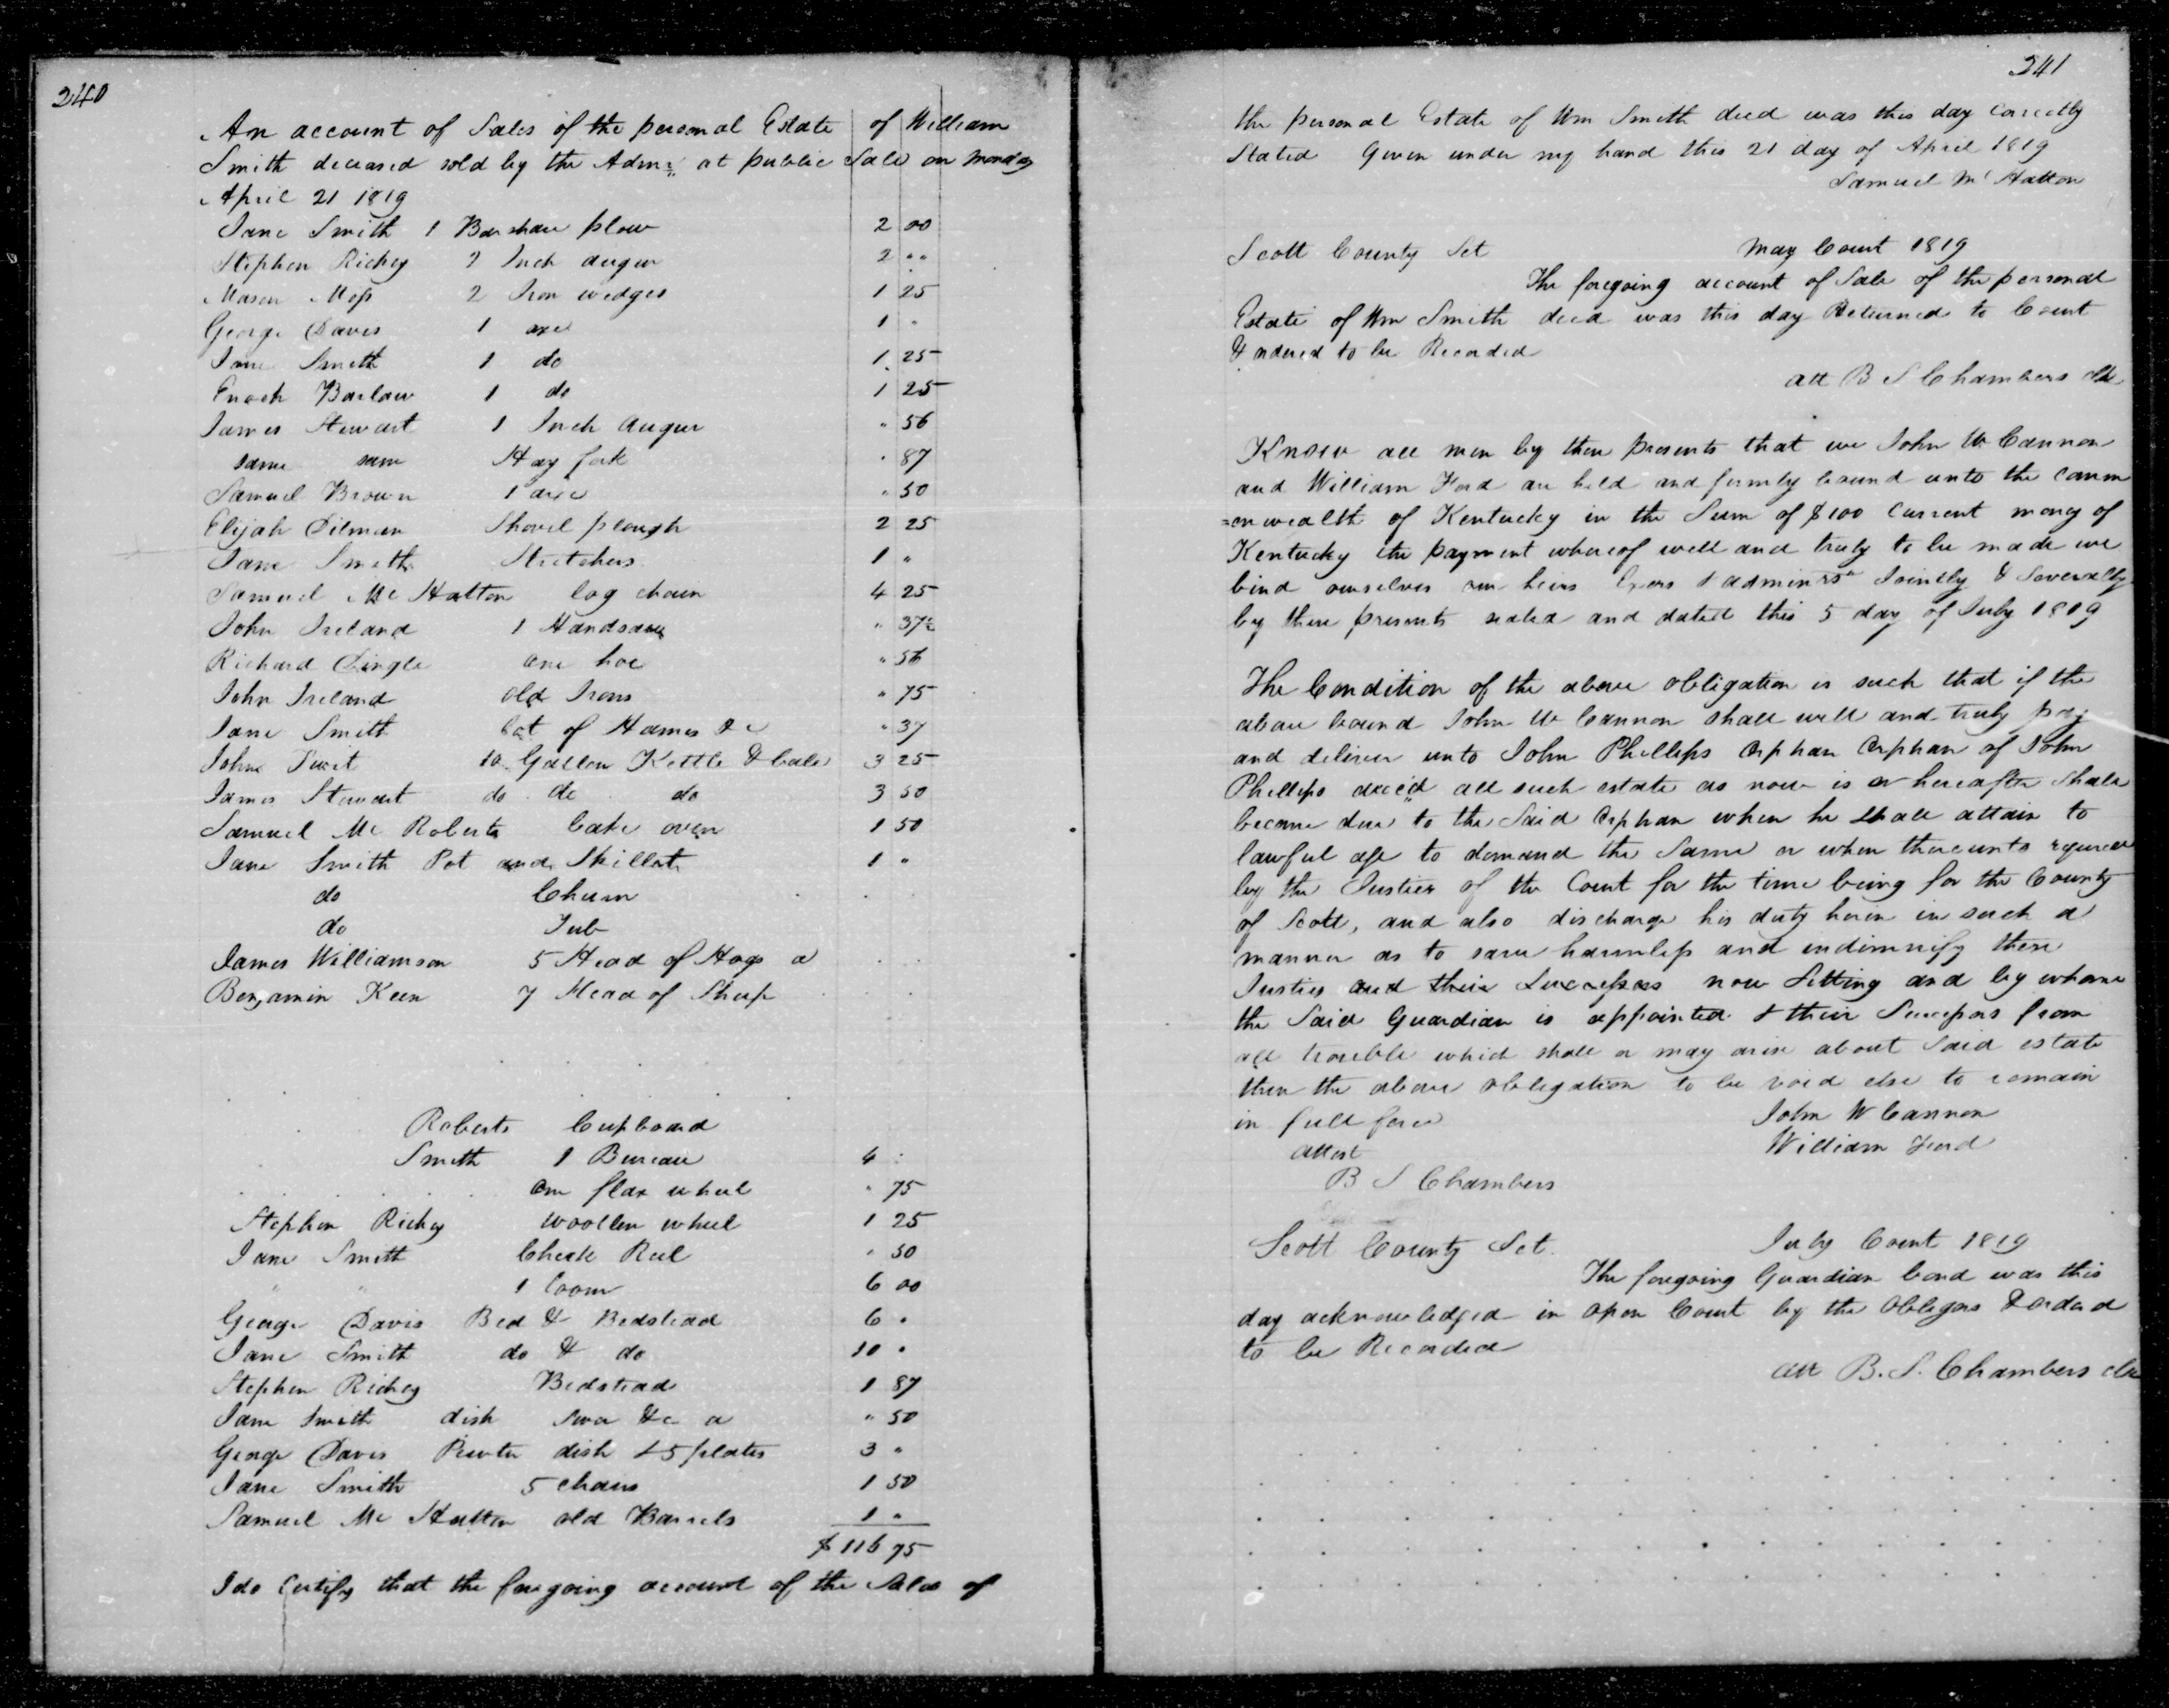 240
An account of Sales of the personal Estate of William
Smith deceased sold by the Admr at public Sale on monday
April 21 1819
Jane Smith 1 Barshare plow 2 00
Stephen Richey 2 Inch auger 2 "
Mason Moss 2 Iron wedges 1 25
George Davis 1 axe 1 "
Jane Smith 1 do 1 25
Enoch Barlow 1 do 1 25
James Stewart 1 Inch Auger " 56
same same Hay fork " 87
Samuel Brown 1 axe " 50
Elijah Dilman Shovel plough 2 25
Jane Smith Stretchers 1 "
Samuel Mc Hatton log chain 4 25
John Ireland 1 Handsaw " 37
Richard Lingle one hoe " 56
John Ireland old Irons " 75
Jane Smith Lot of Hames &c " 37
John 10 Gallon Kettle & bale 3 25
James Stewart do do do 3 50
Samuel Mc Roberts bake oven 1 50
Jane Smith Pot and Skillet 1 "
do Churn
do Tub
James Williamson 5 Head of Hogs a
Benjamin Keen 7 Head of Sheep
Roberts Cupboard
Smith 1 Bureau 4
one flax wheel " 75
Stephen Richey woollen wheel 1 25
Jane Smith Check Reel " 50
" " 1 Loom 6 00
George Davis Bed & Bedstead 6 "
Jane Smith do & do 10 "
Stephen Richey Bedstead 1 87
Jane Smith dish &c a " 50
George Davis Pewter dish & 5 plates 3 "
Jane Smith 5 chairs 1 50
Samuel Mc Hatton old Barrels 1 "
$ 116 75
I do Certify that the foregoing account of the Sales of
241
the personal Estate of Wm Smith decd was this day correctly
Stated Given under my hand this 21 day of April 1819
Samuel Mc Hatton
Scott County Sct May Court 1819
The foregoing account of Sale of the personal
Estate of Wm Smith decd was this day Returned to Court
& ordered to be Recorded
att B S Chambers clk
Know all men by these presents that we John W Cannon
and William Ford are held and firmly bound unto the comm
=onwealth of Kentucky in the Sum of $100 Current money of
Kentucky the payment whereof well and truly to be made we
bind ourselves our heirs Exors & adminrs Jointly & Severally
by these presents sealed and dated this 5 day of July 1819
The Condition of the above obligation is such that if the
above bound John W Cannon shall well and truly pay
and deliver unto John Phillips orphan orphan of John
Phillips decd all such estate as now is or hereafter shall
become due to the Said orphan when he shall attain to
lawful age to demand the Same or when thereunto required
by the Justices of the Court for the time being for the County
of Scott, and also discharge his duty herein in such a
manner as to save harmless and indimnify these
Justices and their Successors now Sitting and by whom
the Said Guardian is appointed & their Successors from
all trouble which shall or may arise about Said estate
then the above obligation to be void else to remain
in full force John W Cannon
William Ford
attest
B S Chambers
Scott County Sct. July Court 1819
The foregoing Guardian bond was this
day acknowledged in open Court by the obligors & orderd
to be Recorded
att B. S. Chambers clk